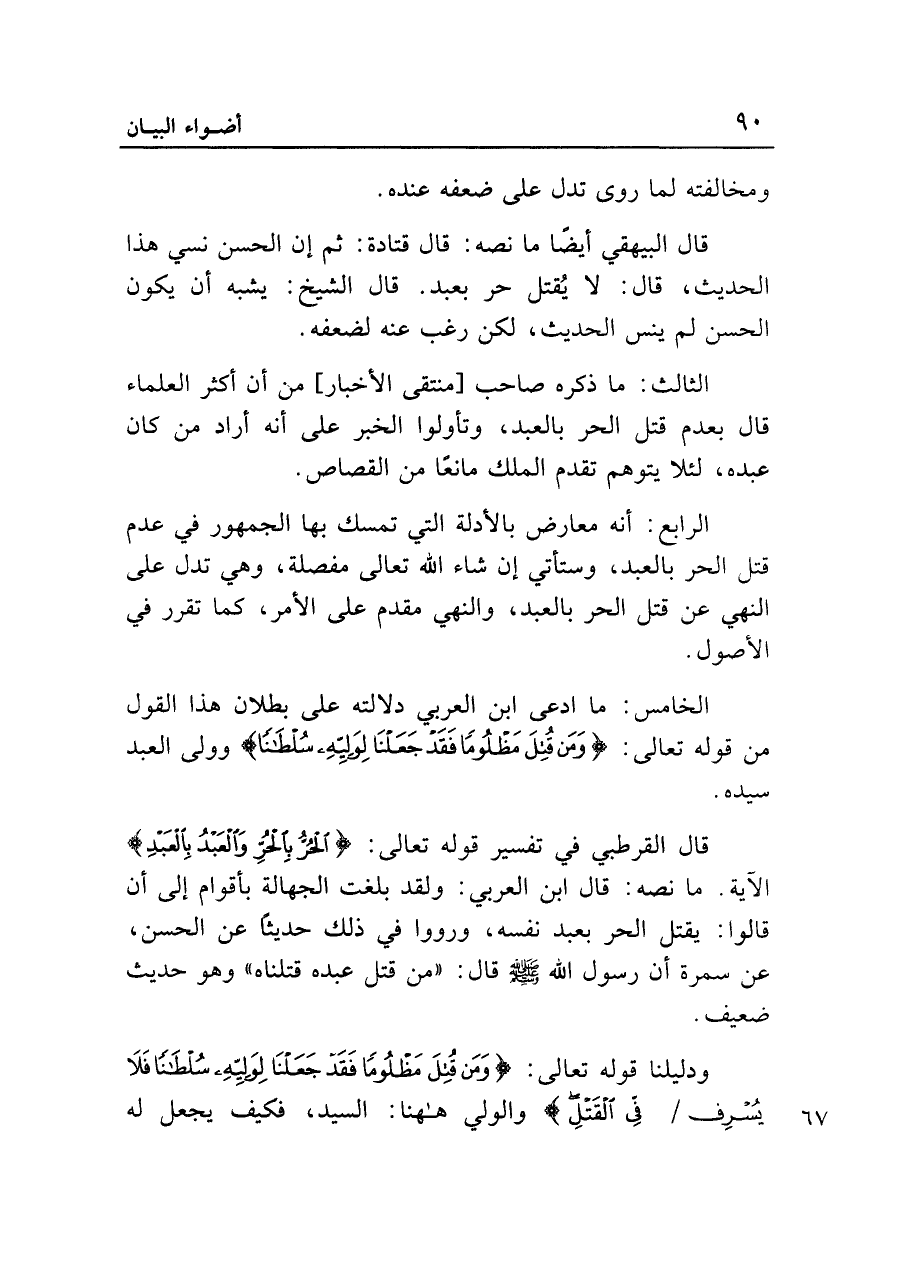 ٩٠ أضـواء البيـان
ومخالفته لما روى تدل على ضعفه عنده.
قال البيهقي أيضًا ما نصه: قال قتادة: ثم إن الحسن نسي هذا
الحديث، قال: لا يُقتل حر بعبد. قال الشيخ: يشبه أن يكون
الحسن لم ينس الحديث، لكن رغب عنه لضعفه.
الثالث: ما ذكره صاحب [منتقى الأخبار] من أن أكثر العلماء
قال بعدم قتل الحر بالعبد، وتأولوا الخبر على أنه أراد من كان
عبده، لئلا يتوهم تقدم الملك مانعًا من القصاص.
الرابع: أنه معارض بالأدلة التي تمسك بها الجمهور في عدم
قتل الحر بالعبد، وستأتي إن شاء الله تعالى مفصلة، وهي تدل على
النهي عن قتل الحر بالعبد، والنهي مقدم على الأمر، كما تقرر في
الأصول.
الخامس: ما ادعى ابن العربي دلالته على بطلان هذا القول
من قوله تعالى: ﴿وَمَن قُتِلَ مَظْلُومًا فَقَدْ جَعَلْنَا لِوَلِيِّهِۦ سُلْطَٰنًا﴾ وولى العبد
سيده.
قال القرطبي في تفسير قوله تعالى: ﴿ٱلْحُرُّ بِٱلْحُرِّ وَٱلْعَبْدُ بِٱلْعَبْدِ﴾
الآية. ما نصه: قال ابن العربي: ولقد بلغت الجهالة بأقوام إلى أن
قالوا: يقتل الحر بعبد نفسه، ورووا في ذلك حديثًا عن الحسن،
عن سمرة أن رسول الله ﷺ قال: «من قتل عبده قتلناه» وهو حديث
ضعيف.
ودليلنا قوله تعالى: ﴿وَمَن قُتِلَ مَظْلُومًا فَقَدْ جَعَلْنَا لِوَلِيِّهِۦ سُلْطَٰنًا فَلَا
٦٧ يُسْرِف / فِّي ٱلْقَتْلِۖ﴾ والولي هـٰهنا: السيد، فكيف يجعل له